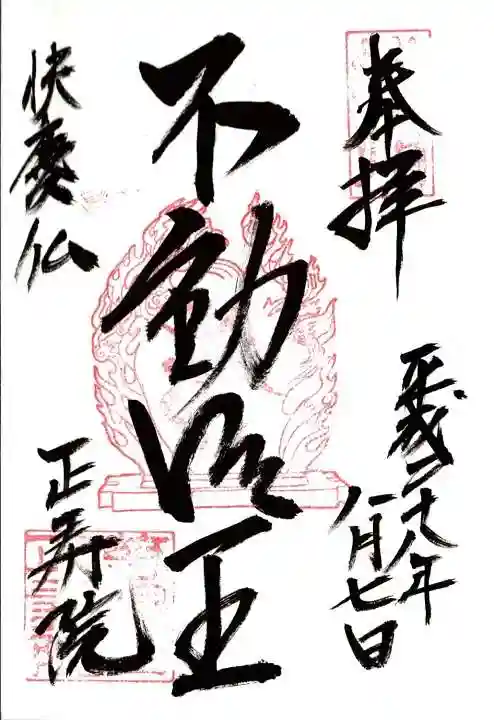 奉拝
平成二十八年
八月七日
不動明王
快慶仏
正寿院